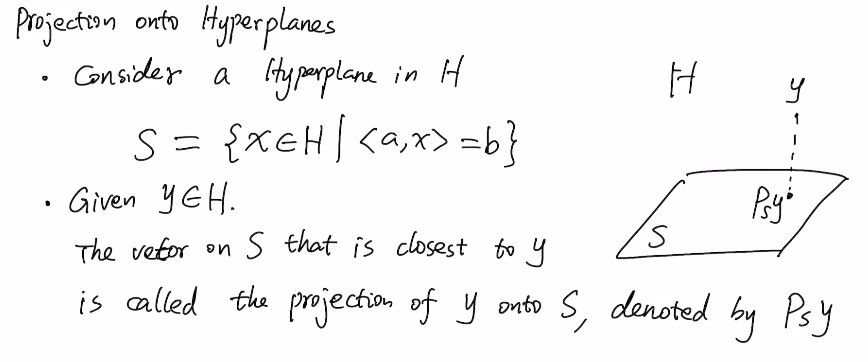 Projection onto Hyperplanes
• Consider a Hyperplane in H
S = {x∈H | <a,x> =b}
• Given y∈H.
The vetor on S that is closest to y
is called the projection of y onto S, denoted by Psy
H
y
Psy
S